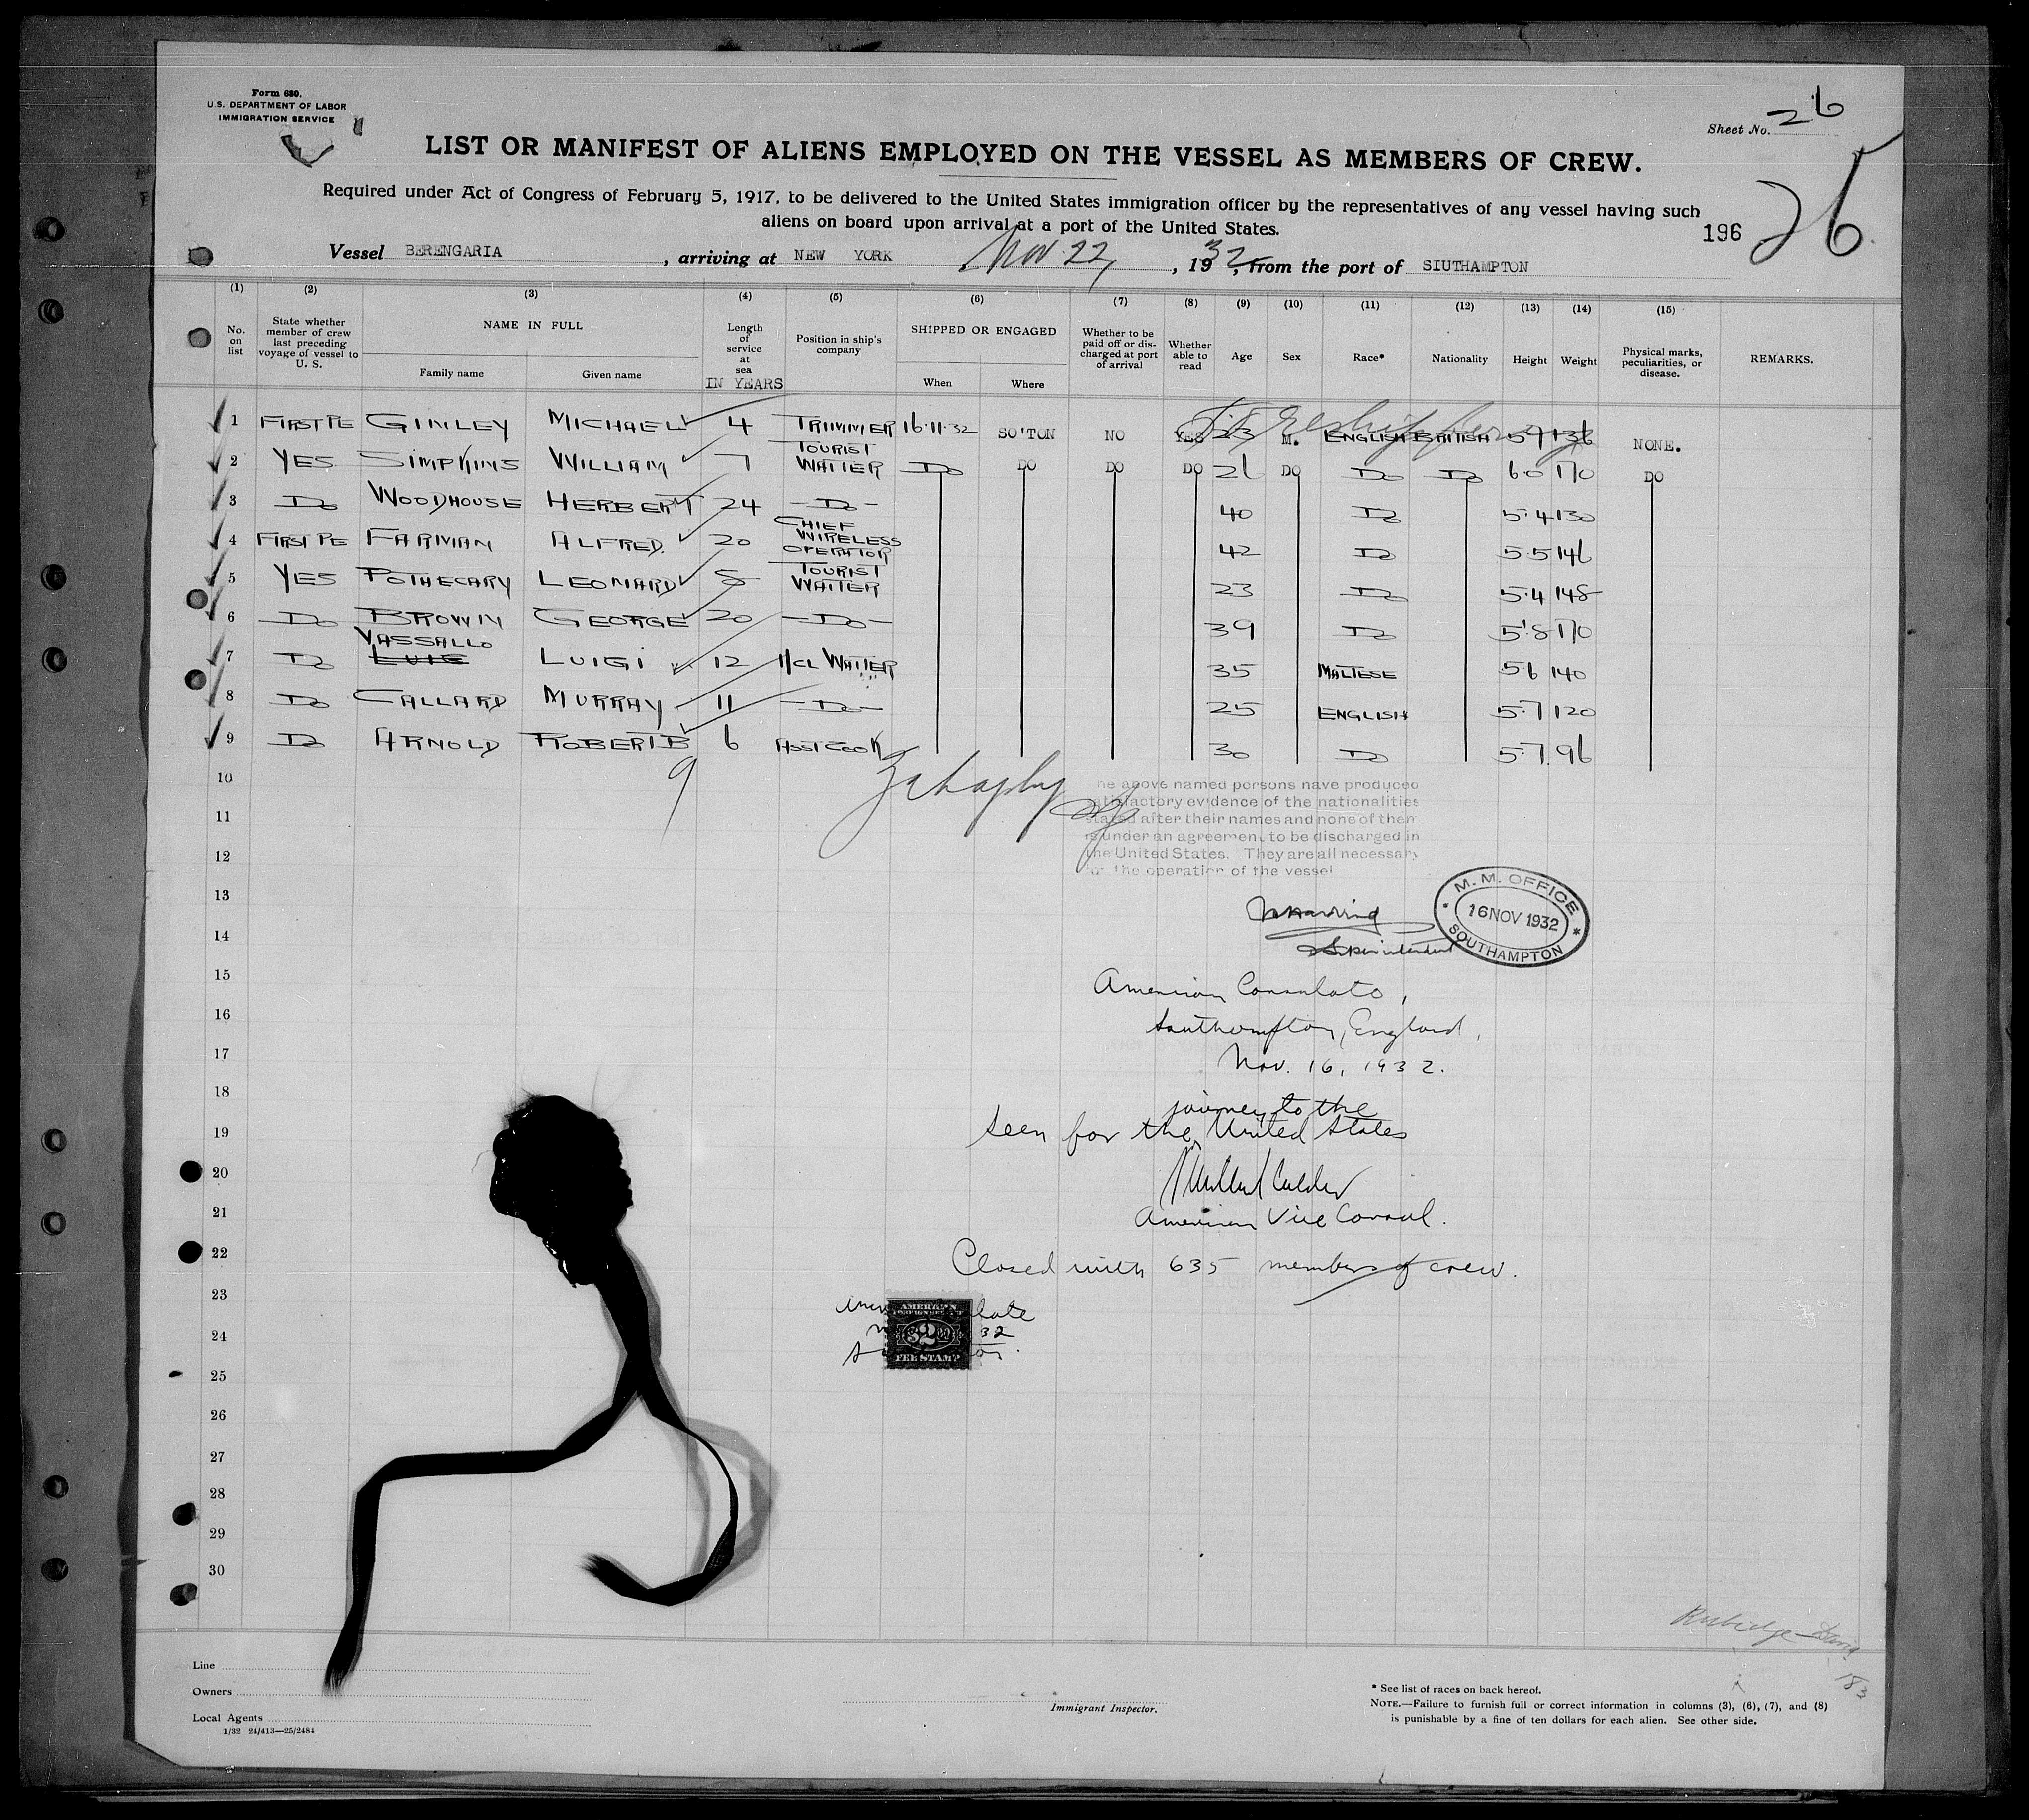 Form 680.
U.S. DEPARTMENT OF LABOR
IMMIGRATION SERVICE
Sheet No. 26
LIST OR MANIFEST OF ALIENS EMPLOYED ON THE VESSEL AS MEMBERS OF CREW.
Required under Act of Congress of February 5, 1917, to be delivered to the United States immigration officer by the representatives of any vessel having such
aliens on board upon arrival at a port of the United States.
196 26
Vessel BERENGARIA, arriving at NEW YORK Nov 22, 1932, from the port of SIUTHAMPTON
(1) (2) (3) (4) (5) (6) (7) (8) (9) (10) (11) (12) (13) (14) (15)
No. on list
State whether member of crew last preceding voyage of vessel to U. S.
NAME IN FULL
Family name Given name
Length of service at sea
IN YEARS
Position in ship's company
SHIPPED OR ENGAGED
When Where
Whether to be paid off or discharged at port of arrival
Whether able to read
Age Sex Race* Nationality Height Weight
Physical marks, peculiarities, or disease.
REMARKS.
1 FIRST PE GINLEY MICHAEL 4 TRIMMER 16.11.32 SO'TON NO YES 23 M. ENGLISH BRITISH NONE.
2 YES SIMPKINS WILLIAM 7 TOURIST WAITER DO DO DO DO 26 DO DO DO 6.0 170 DO
3 DO WOODHOUSE HERBERT 24 -DO- 40 DO 5.4 130
4 FIRST PE FARMAN ALFRED. 20 CHIEF WIRELESS OPERATOR 42 DO 5.5 146
5 YES POTHECARY LEONARD 5 TOURIST WAITER 23 DO 5.4 148
6 DO BROWN GEORGE 20 -DO- 39 DO 5.8 170
7 DO VASSALLO LUIGI 12 1/CL WAITER 35 MALTESE 5.6 140
8 DO CALLARD MURRAY 11 -DO- 25 ENGLISH 5.7 120
9 DO ARNOLD ROBERT B 6 ASST COOK 30 DO 5.7 96
9
10
11
12
13
14
15
16
17
18
19
20
21
22
23
24
25
26
27
28
29
30
he above named persons have produced
atisfactory evidence of the nationalities
stated after their names and none of them
is under an agreement to be discharged in
the United States. They are all necessary
for the operation of the vessel
Superintendent
M.M. OFFICE
16 NOV 1932
SOUTHAMPTON
American Consulate,
Southampton, England,
Nov. 16, 1932.
journey to the
Seen for the United States
American Vice Consul.
Closed with 635 members of crew.
AMERICAN
FOREIGN SERVICE
$2.00
FEE STAMP
32
Line
Owners
Local Agents
1/32 24/413—25/2484
Immigrant Inspector.
* See list of races on back hereof.
NOTE.—Failure to furnish full or correct information in columns (3), (6), (7), and (8)
is punishable by a fine of ten dollars for each alien. See other side.